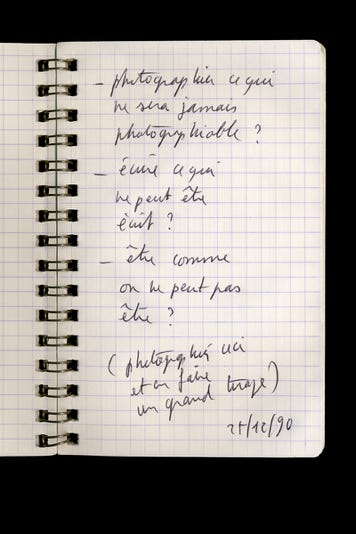 - photographier ce qui
ne sera jamais
photographiable ?
- écrire ce qui
ne peut être
écrit ?
- être comme
on ne peut pas
être ?
(photographier ceci
et en faire
un grand tirage)
25/12/90